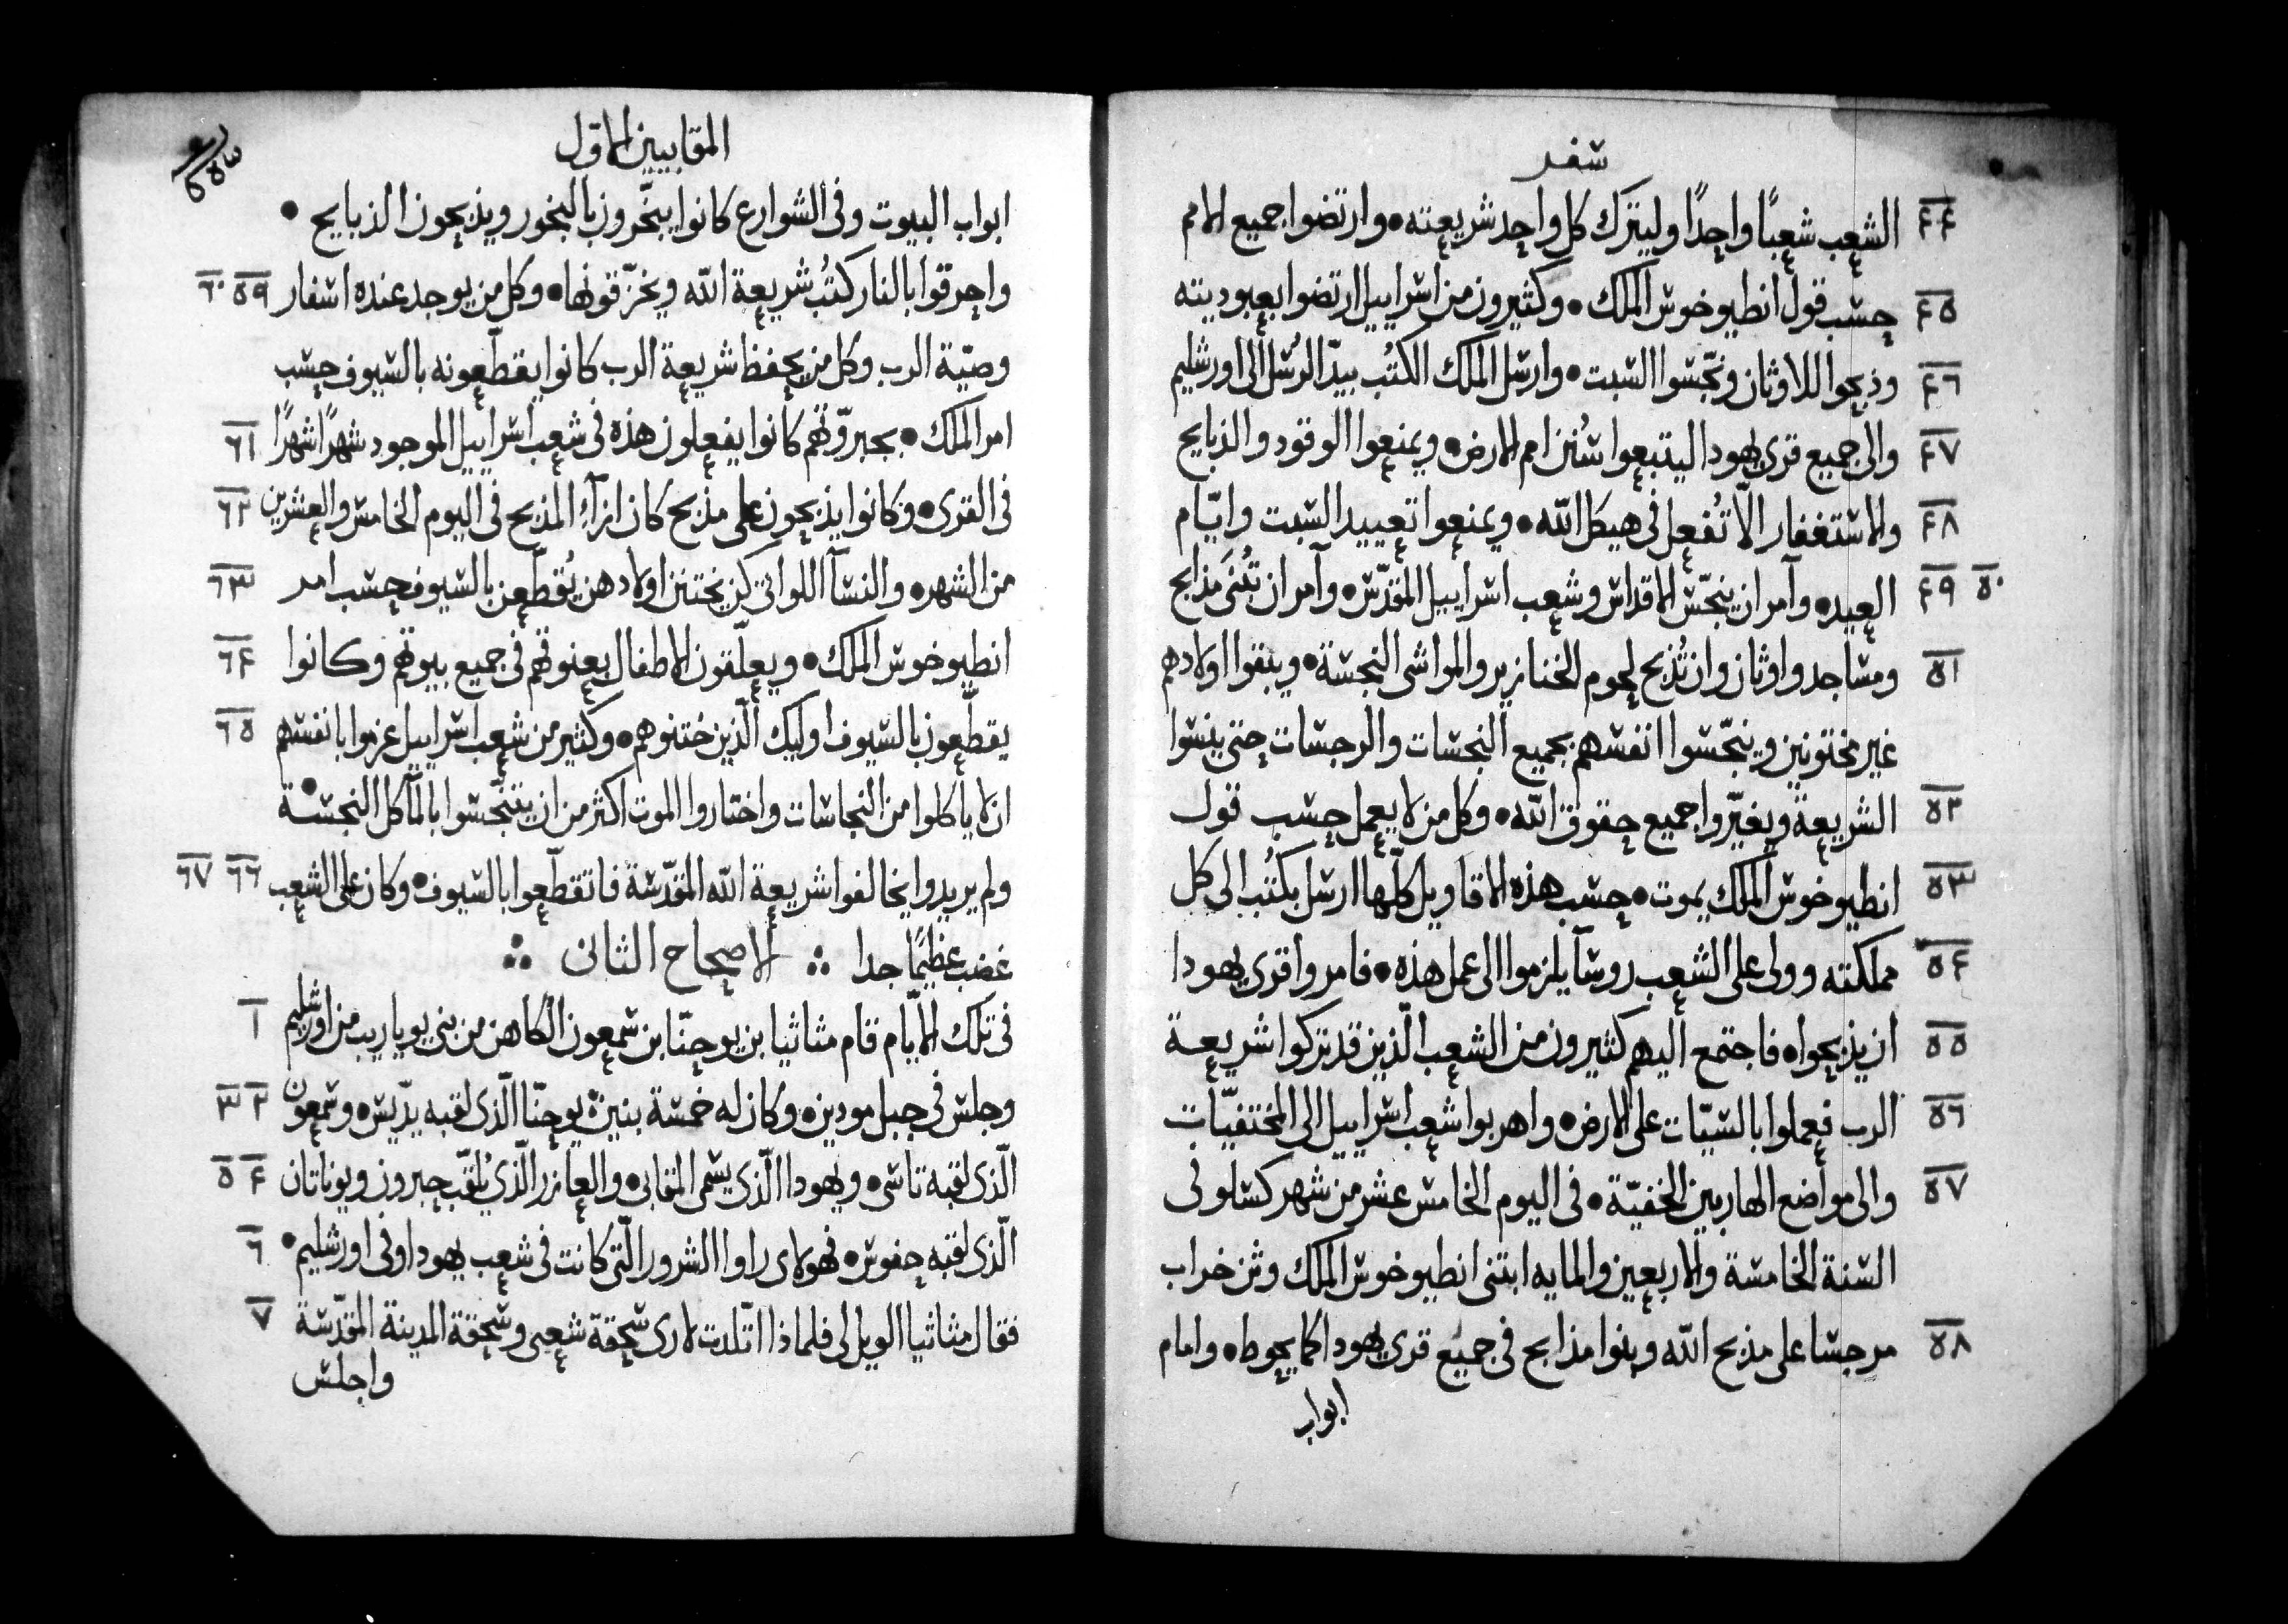 سفر
٤٤ الشعب شعبًا واحدًا وليترك كل واحد شريعته • وارتضوا جميع الامم
٤٥ حسب قول انطيوخوس الملك • وكثيرون من اسراييل ارتضوا بعبوديته
٤٦ وذبحوا للاوثان ونجّسوا السبت • وارسل الملك الكتُب بيدّ الرُسل الى اورشليم
٤٧ والى جميع قرى يهودا ليتبعوا سُنن امم الارض • ويمنعوا الوقود والذبايح
٤٨ والاستغفار الّا تُفعل فى هيكل الله • ويمنعوا تعييد السبت وايّام
٤٩ ٥٠ العيد • وآمر ان ينجّس الاقداس وشعب اسراييل المقدّس • وآمر ان تُبنَى مذابح
٥١ ومساجد واوثان وان تُذبح لحوم الخنازير والمواشى النجسة • ويبقوا اولادهم
غير مختونين وينجّسوا انفسهم بجميع النجسات والرجسات حتى ينسوا
٥٢ الشريعة ويغيّروا جميع حقوق الله • وكل من لا يعمل حسب قول
٥٣ انطيوخوس الملك يموت • حسب هذه الاقاويل كلّها ارسل بكتُب الى كل
٥٤ مملكته وولى على الشعب روسآ يلزموا الى عمل هذه • فامروا قرى يهودا
٥٥ ان يذبحوا • فاجتمع اليهم كثيرون من الشعب الّذين قد تركوا شريعة
٥٦ الرب فعملوا بالسيّات على الارض • واهربوا شعب اسراييل الى المختفيّات
٥٧ والى مواضع الهاربين الخفيّة • فى اليوم الخامس عشر من شهر كسلو فى
السنة الخامسة والاربعين والمايه ابتنى انطيوخوس الملك وثن خراب
٥٨ مرجسا على مذبح الله وبنوا مذابح فى جميع قرى يهودا كما يحوط • وامام
ابواب
المقابيين الاوّل
ابواب البيوت وفى الشوارع كانوا يبخّرون بالبخور ويذبحون الذبايح •
واحرقوا بالنار كتُب شريعة الله ويخزّقونها • وكل من يوجد عنده اسفار ٥٩ ٦٠
وصيّة الرب وكل من يحفظ شريعة الرب كانوا يقطّعونه بالسيوف حسب
امر الملك • بجبروّتهم كانوا يفعلون هذه فى شعب اسراييل الموجود شهرًا شهرًا ٦١
فى القرى • وكانوا يذبحون على مذبح كان ازآء المذبح فى اليوم الخامس والعشرين ٦٢
من الشهر • والنسآ اللواتى كن يختنن اولادهن يُقطّعن بالسيوف حسب امر ٦٣
انطيوخوس الملك • ويعلّقون الاطفال بعنوقهم فى جميع بيوتهم وكانوا ٦٤
يقطّعون بالسيوف اوليك الّذين ختنوهم • وكثير من شعب اسراييل عزموا بانفسهم ٦٥
ان لا ياكلوا من النجاسات واختاروا الموت اكثر من ان يتنجّسوا بالمآكل النجسة
ولم يريدوا يخالفوا شريعة الله المقدّسة فاتقطّعوا بالسيوف • وكان على الشعب ٦٦ ٦٧
غضب عظيمًا جدا ∴ الاصحاح الثانى ∴
فى تلك الايّام قام مثاثيا بن يوحنّا بن شمعون الكاهن من بنى يوياريب من اورشليم ١
وجلس فى جبل مودين • وكان له خمسة بنين يوحنّا الّذى لقبه يدّيس • وشمعون ٢ ٣
الّذى لقبه تاسى • ويهودا الّذى يسمى المقابى • والعازر الّذي يُلقّب حبرون ويوناتان ٤ ٥
الّذى لقبه حفوس • فهولاى راوا الشرور الّتى كانت فى شعب يهودا وفى اورشليم • ٦
فقال مثاثيا الويل لى فلماذا اتّلدت لارى سحقة شعبى وسحقة المدينة المقدّسة ٧
واجلس